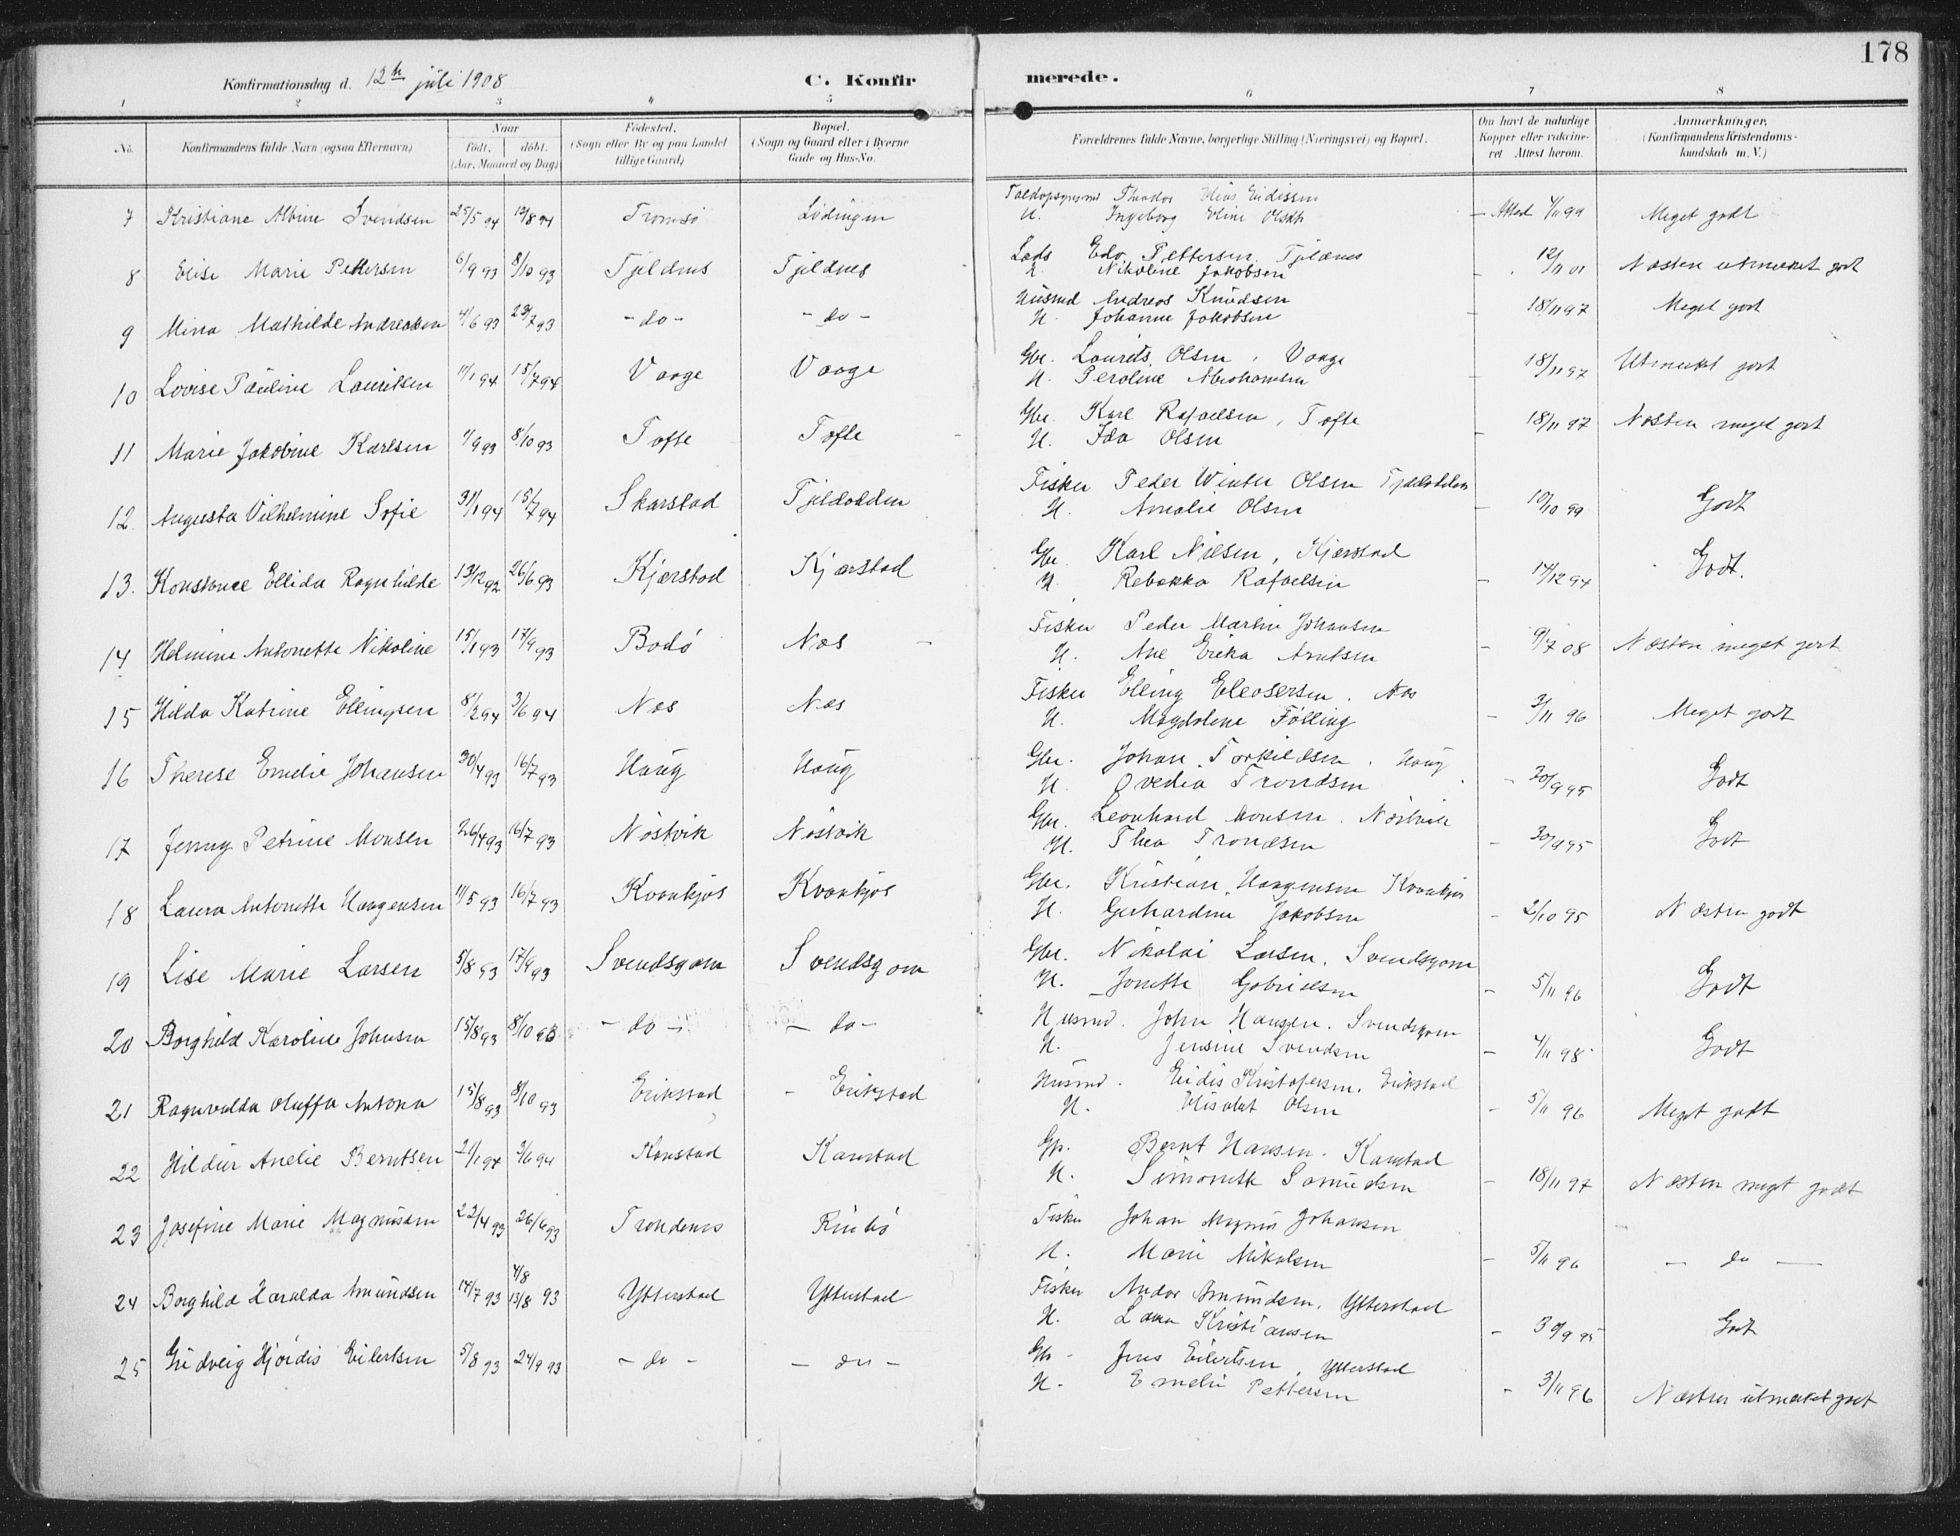 178
Konfirmationsdag d. 12te juli 1908
C. Konfirmerede.
1 2 3 4 5 6 7 8
No. Konfirmandens fulde Navn (ogsaa Efternavn) Naar født. døbt. (Aar, Maaned og Dag) Fødested. (Sogn eller By og paa Landet tillige Gaard) Bopæl. (Sogn og Gaard eller i Byerne Gade og Hus-No. Forældrenes fulde Navne, borgerlige Stilling (Næringsvei) og Bopæl. Om havt de naturlige Kopper eller vaccineret Attest herom. Anmærkninger. (Konfirmandens Kristendomskundskab m. V.)
7 Kristiane Albine Svendsen 25/5 94 19/8 94 Tromsø Lødingen
Ingeborg Eline Meget godt
8 Elise Marie Pettersen 6/9 93 8/10 93 Tjeldnes Tjeldnes Lods Edv. Pettersen, Tjeldnes
H. Nikoline Jakobsen 12/11 01 Næsten utmerket godt
9 Mina Mathilde Andreassen 4/6 93 23/7 93 - do - - do - Husmd Andreas Knudsen
H. Johanne Jakobsen - 18/11 97 Meget godt
10 Lovise Pauline Lauritsen 11/1 94 15/7 94 Vaage Vaage Gbr. Laurits Olsen, Vaage
H. Peroline Abrahamsen - 18/11 97 Utmerket godt
11 Marie Jakobine Karlsen 1/9 93 8/10 93 Tofte Tofte Gbr. Karl Rafaelsen, Tofte
H. Ida Olsen - 18/11 97 Næsten meget godt
12 Augusta Vilhelmine Sofie 31/1 94 15/7 94 Skarstad Tjeldodden Fisker Peder Winter Olsen Tjeldodden
H. Amalie Olsen - 10/10 99 Godt
13. Konstance Ellida Ragnhilde 13/12 92 26/6 93 Kjærstad Kjærstad Gbr. Karl Nilsen, Kjærstad
H. Rebekka Rafaelsen - 14/12 94 Godt.
14 Helmine Antonette Nikoline 15/1 93 17/9 93 Bodø Nes - Fisker Peder Martin Johansen
H. Ane Erika Arntsen - 9/7 08 Næsten meget godt
15 Hilda Katrine Ellingsen 8/2 94 3/6 94 Nes Nes Fisker Elling Eleasersen. Nes
H. Magdalene Følling - 3/11 96 Meget godt
16 Therese Emelie Johansen 30/4 93 16/7 93 Haug Haug Gbr. Johan Torkildsen. Haug
H. Ovedia Trondsen - 30/9 95 Godt
17 Jenny Petrine Monsen 26/4 93 16/7 93 Nøstvik Nøstvik Gbr. Leonhard Monsen. Nøstvik
H. Thea Trondsen - 30/9 95 Godt
18 Laura Antonette Haagensen 11/5 93 16/7 93 Kvankjos Kvankjos Gbr. Kristian Haagensen Kvankjos
H. Gerhardine Jakobsen - 2/10 95 Næsten godt
19 Lise Marie Larsen 5/8 93 17/9 93 Svendsgam Svendsgam Gbr. Nikolai Larsen. Svendsgam
H. Jonette Gabrielsen - 5/11 96 Godt
20 Borghild Karoline Johnsen 15/8 93 8/10 93 - do - - do - Husmd. John Hansen. Svendsgam
H. Jensine Svendsen - 4/11 98 Godt
21 Ragnvalda Oluffa Antona 15/8 93 8/10 93 Erikstad - Erikstad Husmd. Eidis Kristofersen. Erikstad
H. Elisabet Olsen - 5/11 96 Meget godt
22 Hildur Anelie Berntsen 21/1 94 3/6 94 Kanstad Kanstad Gbr. Bernt Hansen. Kanstad
H. Simonette Samuelsen - 18/11 97 Næsten meget godt
23 Josefine Marie Magnusen 22/4 93 26/6 93 Trondenes Rinbø Fisker Johan Magnus Johansen
H. Marie Mikalsen - 5/11 96 - do -
24 Borghild Haralda Amundsen 14/7 93 4/8 13/8 93 Ytterstad Ytterstad Fisker Andor Amundsen. Ytterstad
H. Laura Kristiansen - 30/9 95 Godt
25 Gudveig Hjørdis Eilertsen 5/8 93 24/9 93 - do - - do - Gbr - Jens Eilertsen, Ytterstad
H. Emelie Pettersen - 3/11 96 Næsten utmerket godt